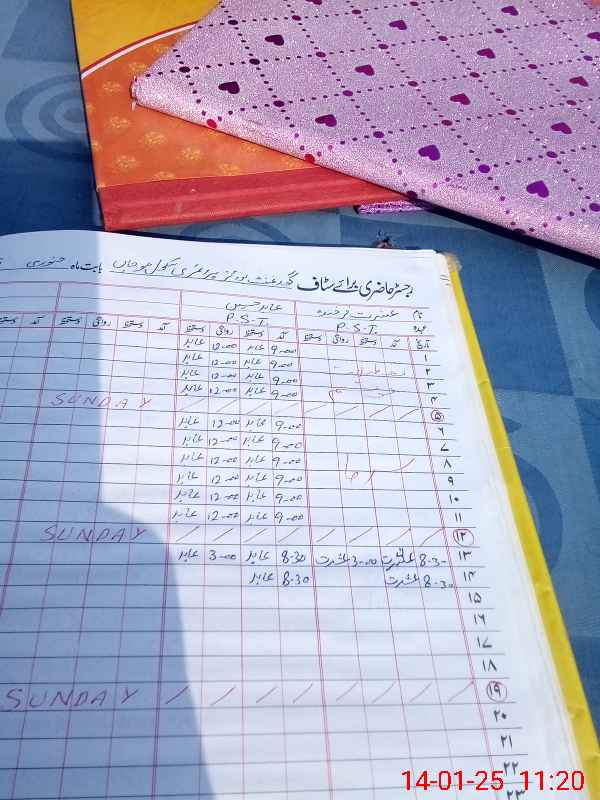 رجسٹر حاضری برائے سٹاف گورنمنٹ بوائز پرائمری سکول بابت ماہ جنوری
نام عشرت فرخندہ عابد حسین
عہدہ P.S.T. P.S.T.
تاریخ آمد دستخط روانگی دستخط آمد دستخط روانگی دستخط آمد دستخط روانگی دستخط آمد دستخط
۱ 9-00 عابد 12-00 عابد
۲ 9-00 عابد 12-00 عابد
۳ 9-00 عابد 12-00 عابد
۴ 9-00 عابد 12-00 عابد
۵ SUNDAY
۶ 9-00 عابد 12-00 عابد
۷ 9-00 عابد 12-00 عابد
۸ 9-00 عابد 12-00 عابد
۹ 9-00 عابد 12-00 عابد
۱۰ 9-00 عابد 12-00 عابد
۱۱ 9-00 عابد 12-00 عابد
۱۲ SUNDAY
۱۳ 8-30 عشرت 3-00 عشرت 8-30 عابد 3-00 عابد
۱۴ 8-30 عشرت 8-30 عابد
۱۵
۱۶
۱۷
۱۸
۱۹ SUNDAY
۲۰
۲۱
۲۲
۲۳
14-01-25 11:20